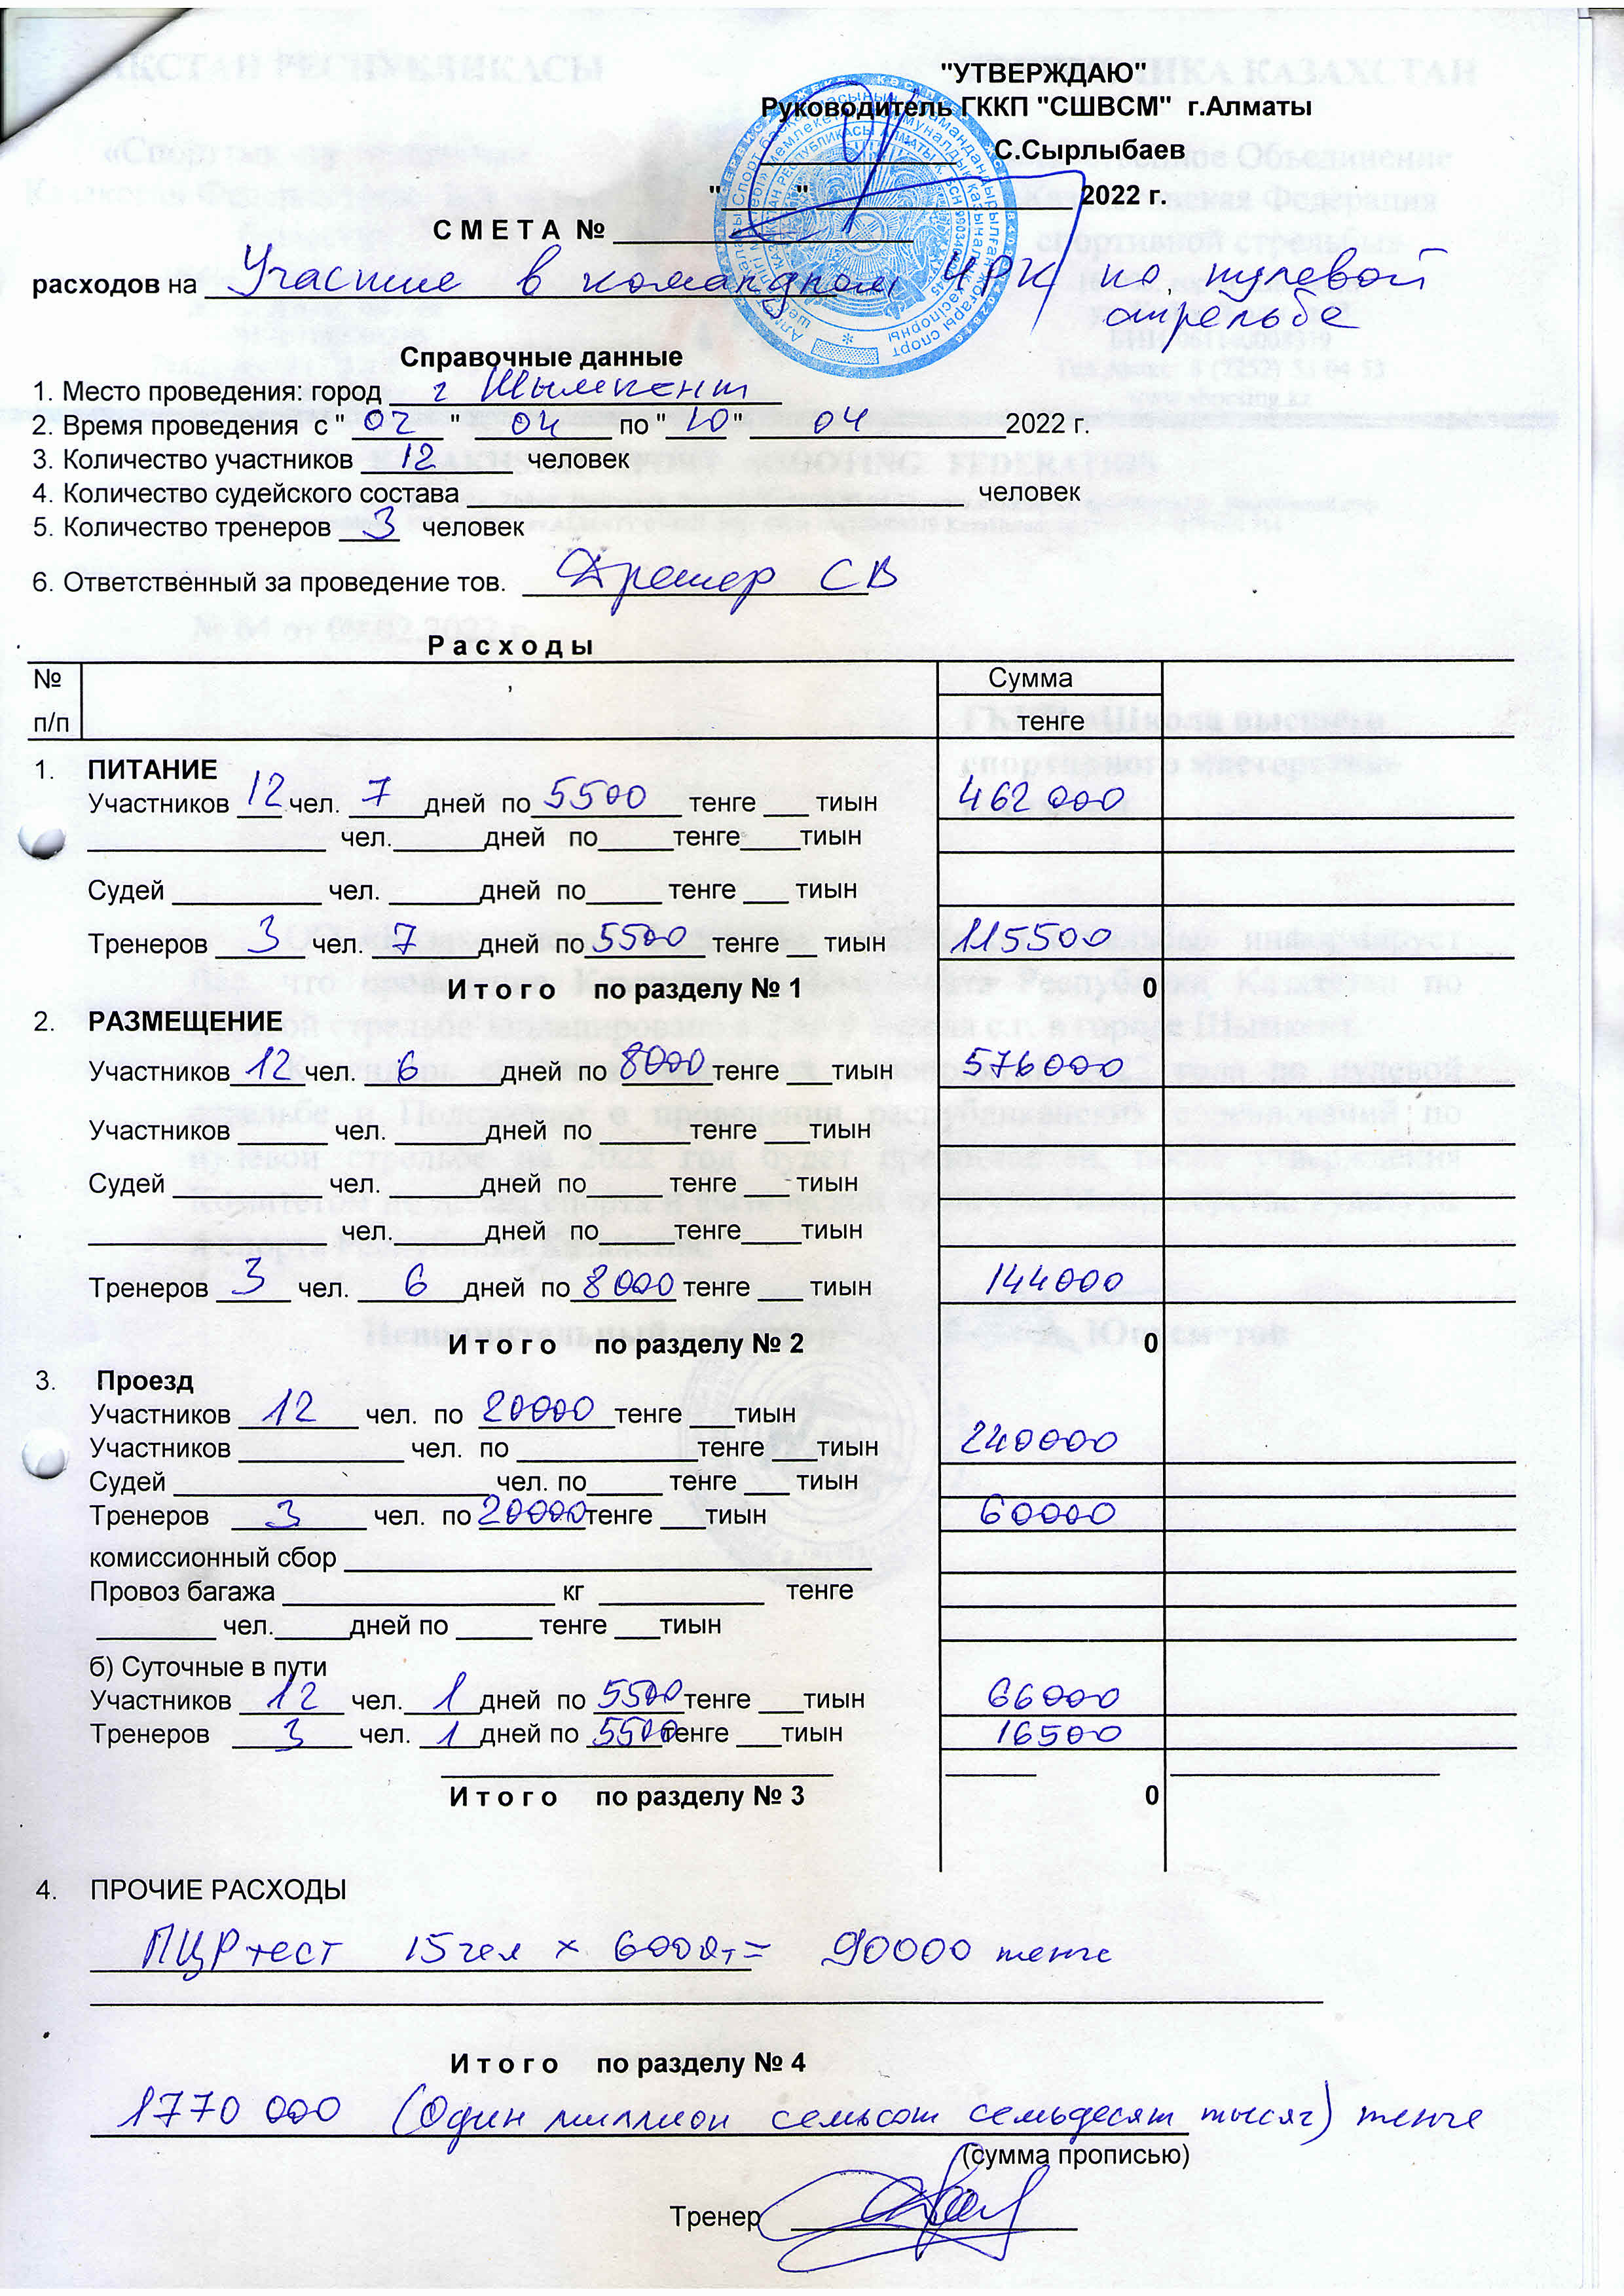 "УТВЕРЖДАЮ"
Руководитель ГККП "СШВСМ" г.Алматы
____________ С.Сырлыбаев
"_____"__________________ 2022 г.
С М Е Т А № ____________________
расходов на Участие в командном ЧРК по пулевой
стрельбе
Справочные данные
1. Место проведения: город г Шымкент
2. Время проведения с " 02 " 04 по " 10 " 04 2022 г.
3. Количество участников 12 человек
4. Количество судейского состава ____________________ человек
5. Количество тренеров 3 человек
6. Ответственный за проведение тов. Дрешер СВ
Р а с х о д ы
№ п/п Сумма
тенге
1. ПИТАНИЕ
Участников 12 чел. 7 дней по 5500 тенге ___ тиын 462 000
________________ чел.______дней по_____тенге____тиын
Судей __________ чел. ______дней по_____ тенге ___ тиын
Тренеров 3 чел. 7 дней по 5500 тенге __ тиын 115500
И т о г о по разделу № 1 0
2. РАЗМЕЩЕНИЕ
Участников 12 чел. 6 дней по 8000 тенге ___тиын 576000
Участников ______ чел. ______дней по ______тенге ___тиын
Судей __________ чел. ______дней по_____ тенге ___ тиын
________________ чел.______дней по_____тенге____тиын
Тренеров 3 чел. 6 дней по 8000 тенге ___ тиын 144000
И т о г о по разделу № 2 0
3. Проезд
Участников 12 чел. по 20000 тенге ___тиын
Участников ___________ чел. по ____________тенге ___тиын 240000
Судей _____________________ чел. по_____ тенге ___ тиын
Тренеров 3 чел. по 20000 тенге ___тиын 60000
комиссионный сбор ___________________________________
Провоз багажа __________________ кг ___________ тенге
________ чел._____дней по _____ тенге ___тиын
б) Суточные в пути
Участников 12 чел. 1 дней по 5500 тенге ___тиын 66000
Тренеров 3 чел. 1 дней по 5500 тенге ___тиын 16500
И т о г о по разделу № 3 0
4. ПРОЧИЕ РАСХОДЫ
ПЦР тест 15 чел × 6000т = 90000 тенге
И т о г о по разделу № 4
1770 000 (Один миллион семьсот семьдесят тысяч) тенге
(сумма прописью)
Тренер ___________________